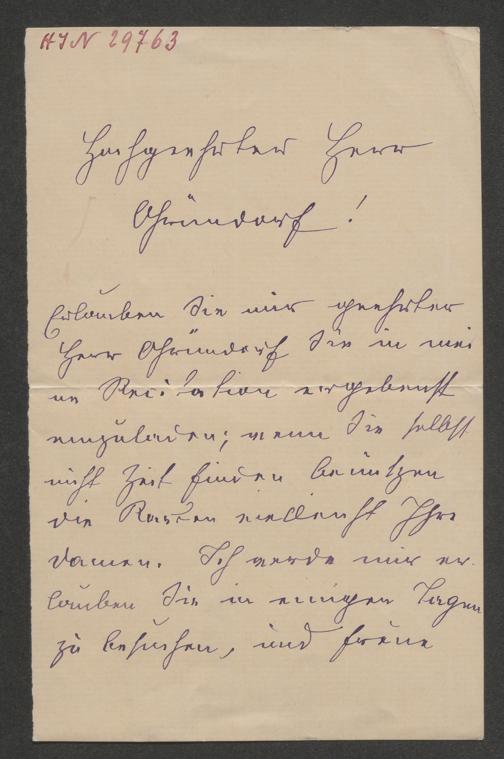 HIN 29763
Hochgeehrter Herr
Gründorf!
Erlauben Sie mir geehrter
Herr Gründorf Sie in mei
ne Recitation ergebenst
einzuladen; wenn Sie selbst
nicht Zeit finden benützen
die Karten vielleicht Ihre
Damen. Ich werde mir er
lauben Sie in einigen Tagen
zu besuchen, und freue